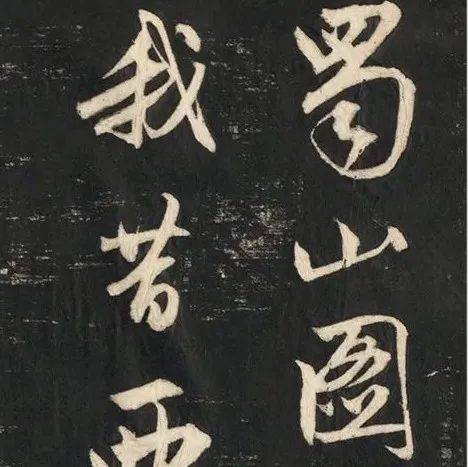 蜀山圖
我昔西